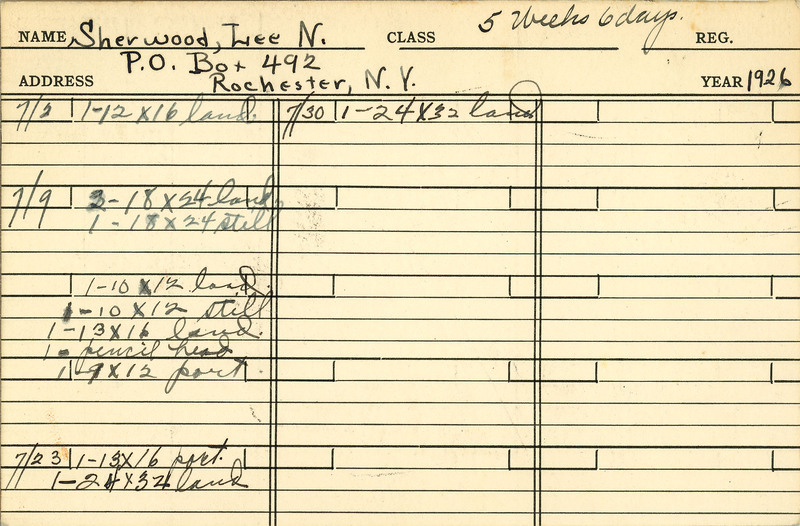 5 Weeks 6 days.
NAME Sherwood, Lee N. CLASS REG.
P.O. Box 492
ADDRESS Rochester, N.Y. YEAR 1926
7/2 1-12 x 16 land
7/9 3-18 x 24 land
1-18 x 24 still
1-10 x 12 land.
1-10 x 12 still
1-13 x 16 land.
1- pencil head
1 9 x 12 port.
7/23 1-13 x 16 port.
1-24 x 32 land
7/30 1-24 x 32 land